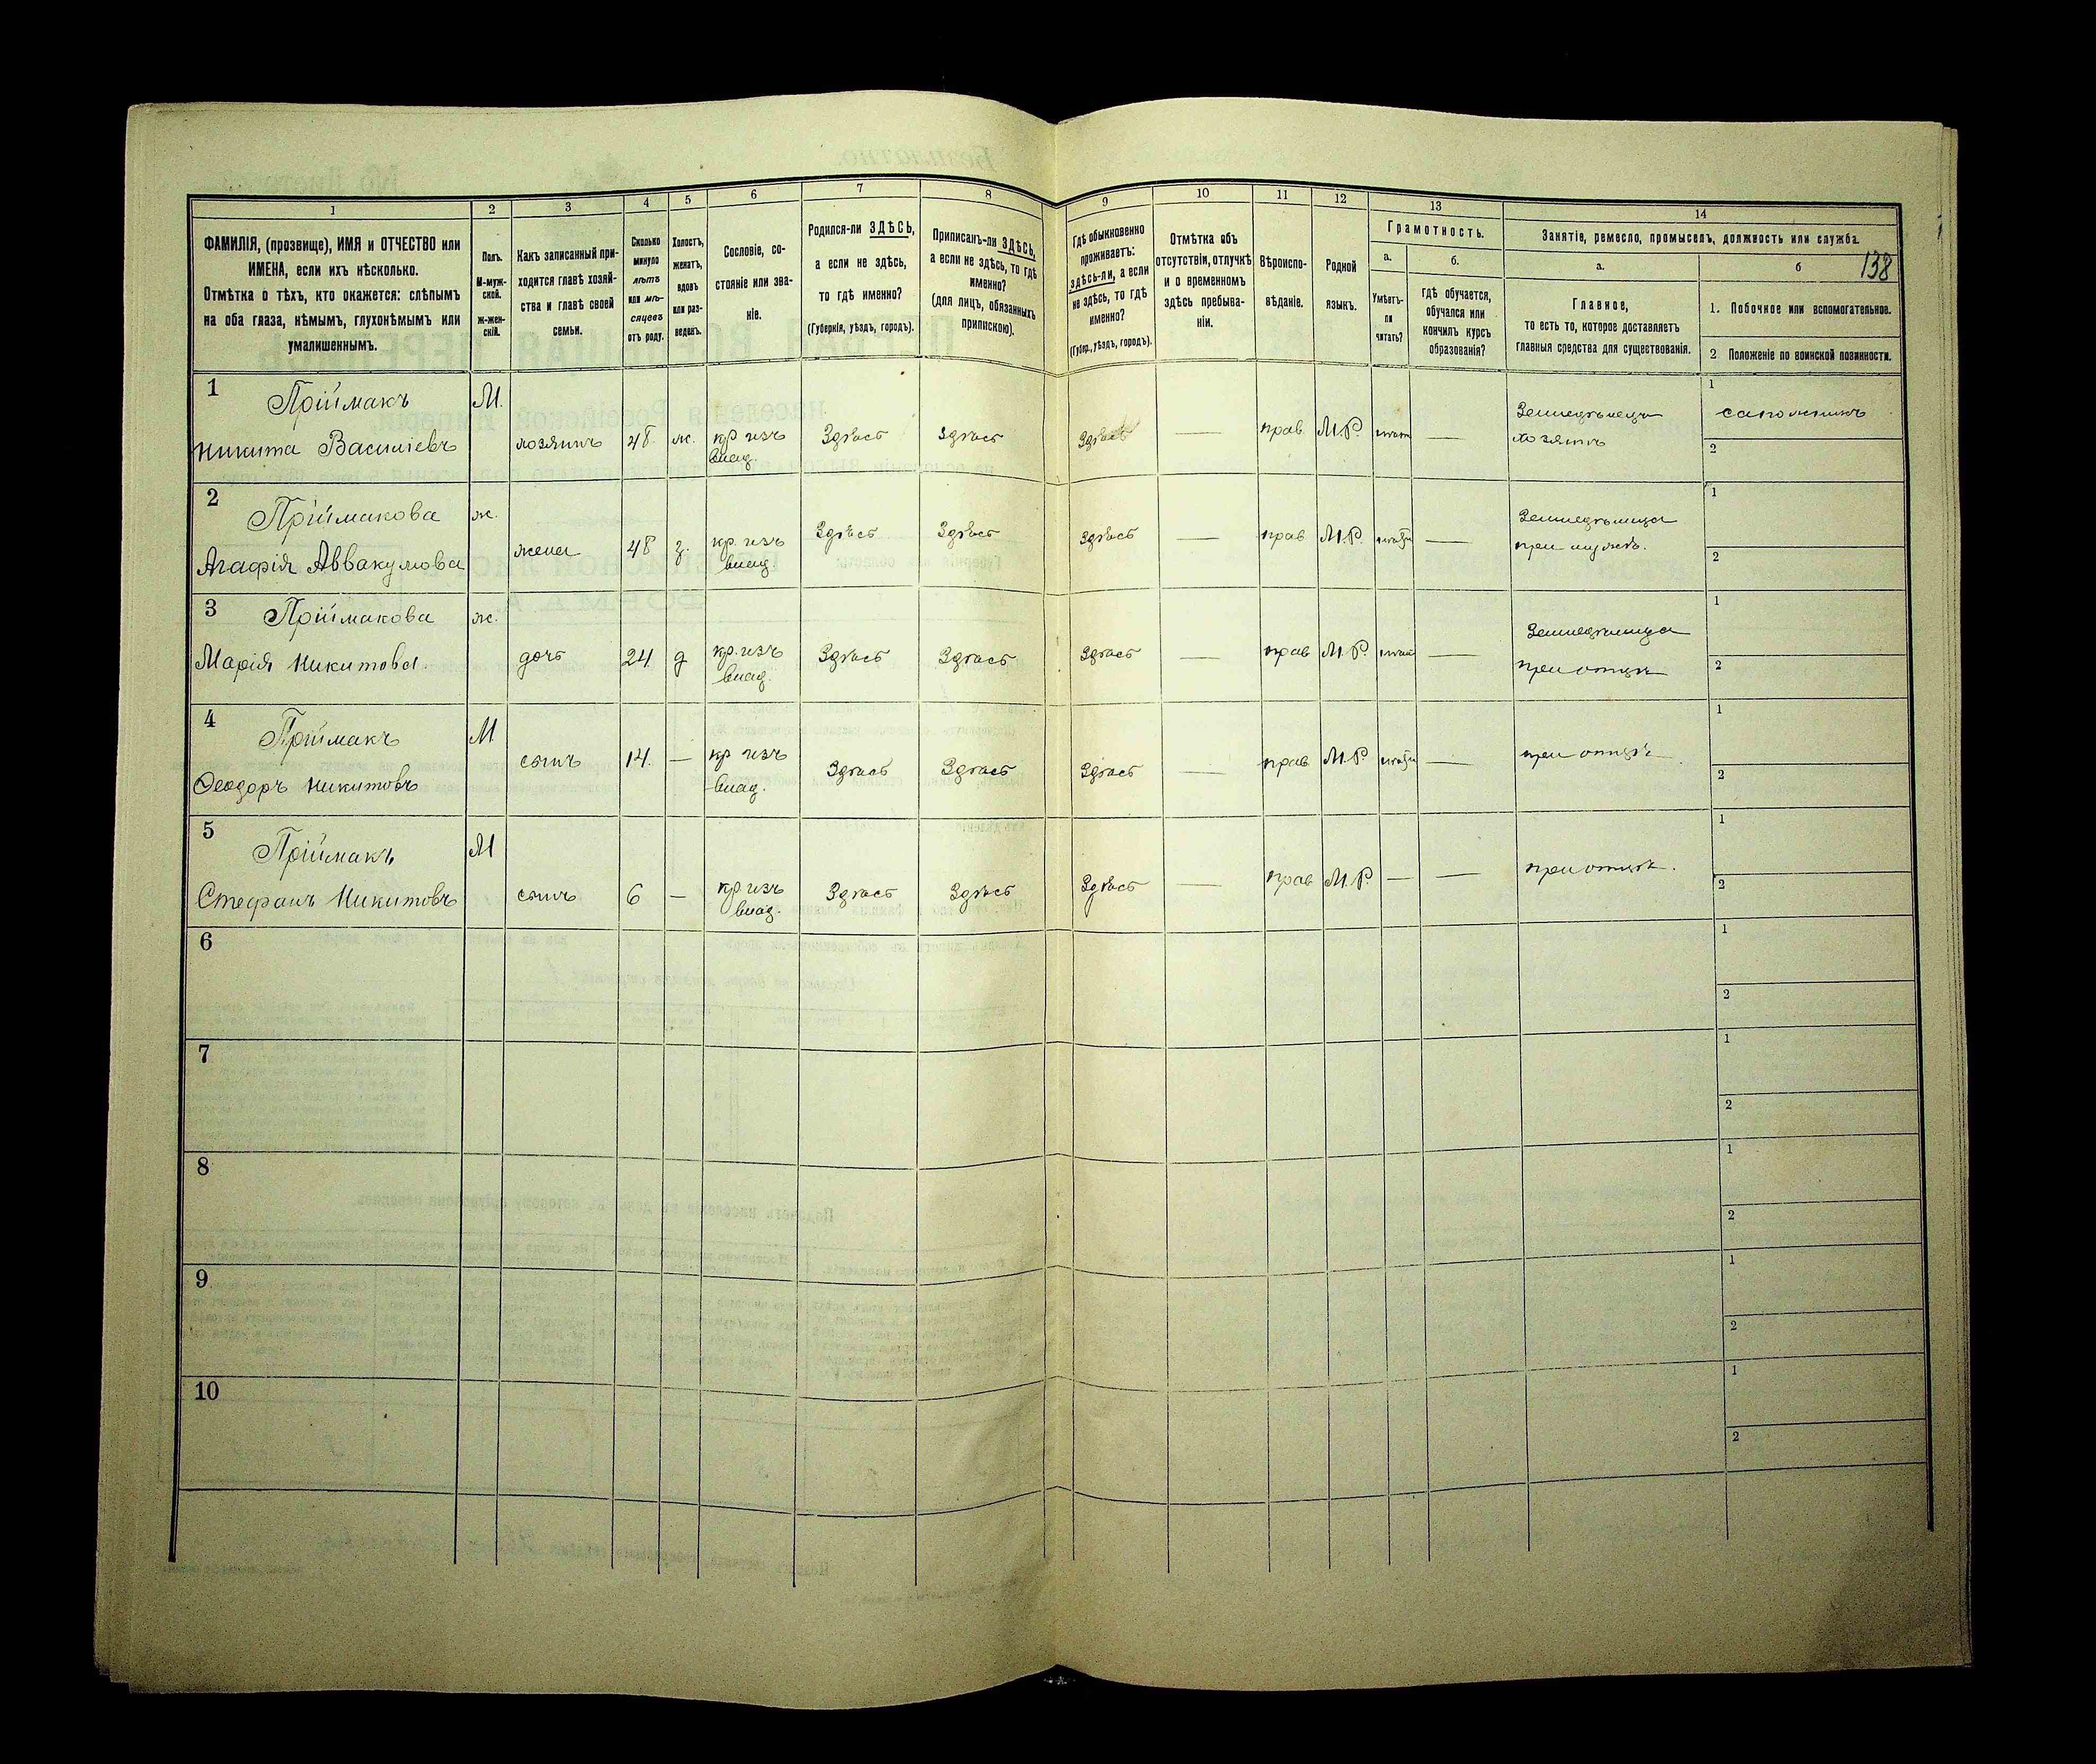 1 2 3 4 5 6 7 8 9 10 11 12 13 14
ФАМИЛІЯ, (прозвище), ИМЯ и ОТЧЕСТВО или
ИМЕНА, если ихъ нѣсколько.
Отмѣтка о тѣхъ, кто окажется: слѣпымъ
на оба глаза, нѣмымъ, глухонѣмымъ или
умалишеннымъ.
Полъ.
М-муж-
ской.
ж-жен-
скій.
Какъ записанный при-
ходится главѣ хозяй-
ства и главѣ своей
семьи.
Сколько
минуло
лѣтъ
или мѣ-
сяцевъ
отъ роду.
Холостъ,
женатъ,
вдовъ
или раз-
веденъ.
Сословіе, со-
стояніе или зва-
ніе.
Родился-ли ЗДѢСЬ,
а если не здѣсь,
то гдѣ именно?
(Губернія, уѣздъ, городъ).
Приписанъ-ли ЗДѢСЬ,
а если не здѣсь, то гдѣ
именно?
(для лицъ, обязанныхъ
припискою).
Гдѣ обыкновенно
проживаетъ:
здѣсь-ли, а если
не здѣсь, то гдѣ
именно?
(Губер., уѣздъ, городъ).
Отмѣтка объ
отсутствіи, отлучкѣ
и о временномъ
здѣсь пребыва-
ніи.
Вѣроиспо-
вѣданіе.
Родной
языкъ.
Грамотность.
а.
Умѣетъ-
ли
читать?
б.
Гдѣ обучается,
обучался или
кончилъ курсъ
образованія?
Занятіе, ремесло, промыселъ, должность или служба.
а.
Главное,
то есть то, которое доставляетъ
главныя средства для существованія.
б
138
1. Побочное или вспомогательное.
2 Положеніе по воинской повинности.
1 Пріймакъ М. 1
Никита Василіевъ хозяинъ 48. ж. кр изъ Здѣсь Здѣсь Здѣсь — прав. М.Р. — Земледѣлецъ сапожникъ
влад. хозяинъ 2
2 Пріймакова ж. 1
Агафія Аввакумова жена 48 з. кр. изъ Здѣсь Здѣсь Здѣсь — прав М.Р. — Земледѣлица
влад. при мужѣ. 2
3 Пріймакова ж. 1
Марія Никитова. дочь 24 д кр. изъ Здѣсь Здѣсь Здѣсь — прав М.Р. — Земледѣлица
влад. при отцѣ 2
4 Пріймакъ М 1
Ѳеодоръ Никитовъ сынъ 14. — кр изъ Здѣсь Здѣсь Здѣсь — прав М.Р. — при отцѣ
влад. 2
5 Пріймакъ М 1
Стефанъ Никитовъ сынъ 6 — кр. изъ Здѣсь Здѣсь Здѣсь — прав М.Р. — — при отцѣ.
влад. 2
6 1
2
7 1
2
8 1
2
9 1
2
10 1
2